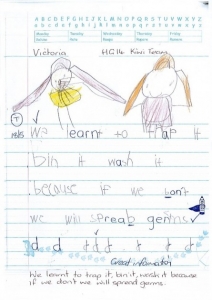 A B C D E F G H I J K L M N O P Q R S T U V W X Y Z
a b c d e f g h i j k l m n o p q r s t u v w x y z
Monday Tuesday Wednesday Thursday Friday
Victoria
T
We learnt to trap it
bin it wash it
because if we don't
we will spreab germs
d d t d d t d d
Great information
We learnt to trap it, bin it, wash it because
if we don't we will spread germs.